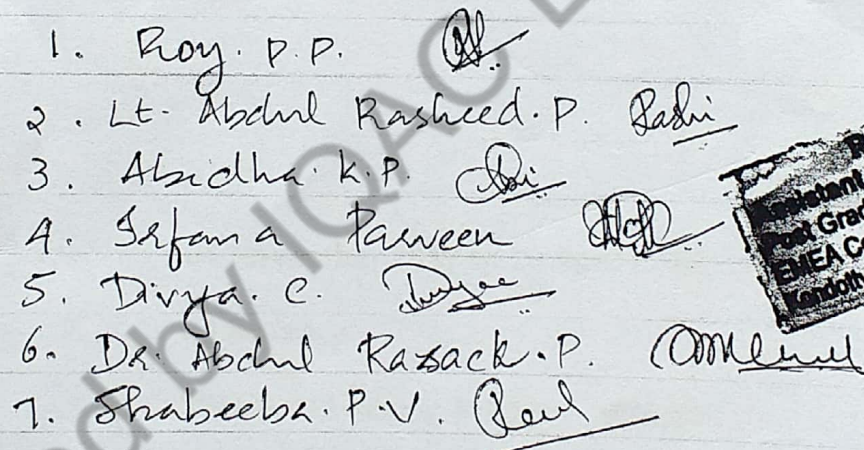 1. Roy. P.P.
2. Lt. Abdul Rasheed. P. Rashi
3. Abidha. K.P.
4. Irfana Parveen
5. Divya. C.
6. Dr. Abdul Razack. P.
7. Shabeeba. P.V.
Assistant
Post Grad
EMEA C
Kondott
ed by IQAC